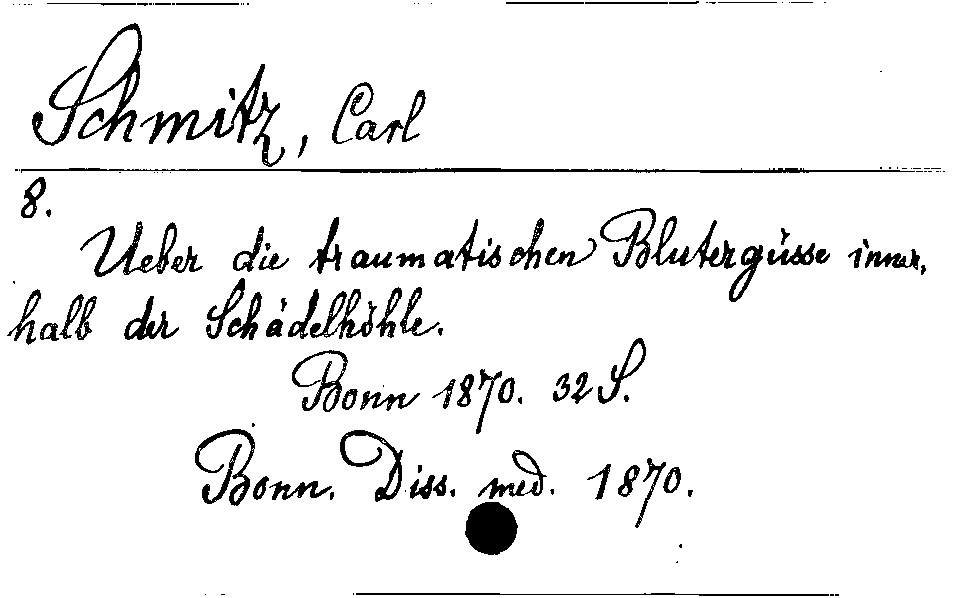 Schmitz, Carl
8.
Ueber die traumatischen Blutergüsse inner,
halb der Schädelhöhle.
Bonn 1870. 32 S.
Bonn. Diss. med. 1870.